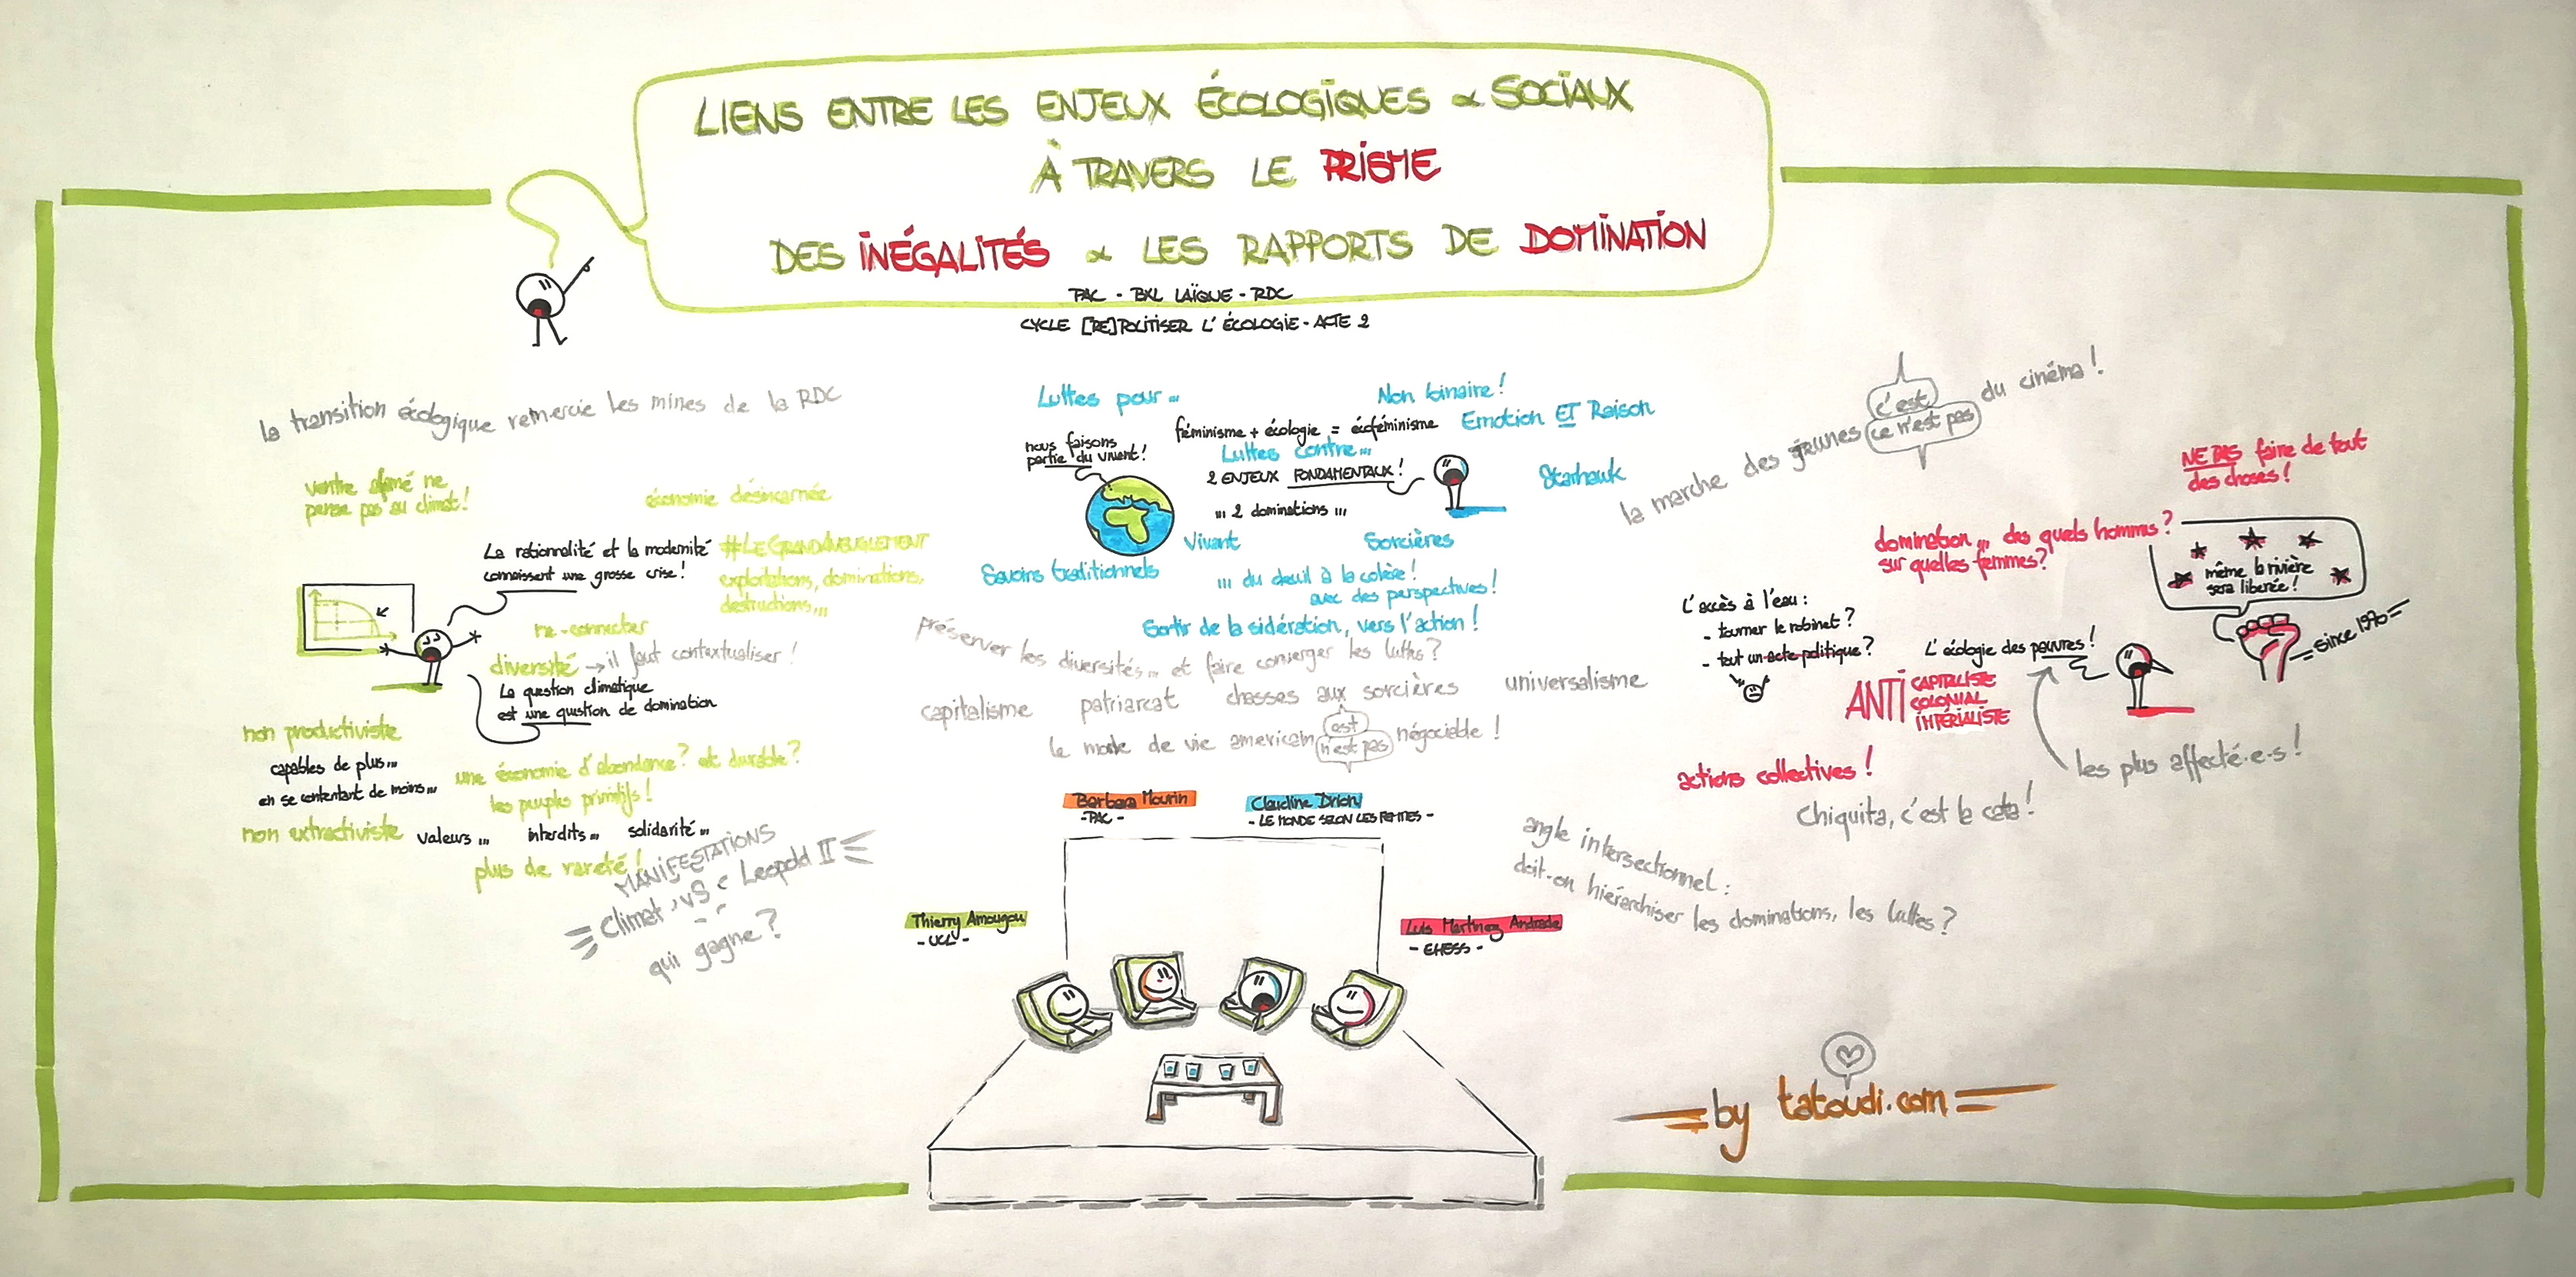 LIENS ENTRE LES ENJEUX ÉCOLOGIQUES & SOCIAUX
À TRAVERS LE PRISME
DES INÉGALITÉS & LES RAPPORTS DE DOMINATION
PAC - BXL LAÏQUE - RDC
CYCLE [RE]POLITISER L'ÉCOLOGIE - ACTE 2
la transition écologique remercie les mines de la RDC
ventre afamé ne
pense pas au climat!
économie désincarnée
La rationnalité et la modernité
connaissent une grosse crise!
#LEGRANDAVEUGLEMENT
exploitations, dominations,
destructions...
re-connecter
diversité → il faut contextualiser!
La question climatique
est une question de domination
non productiviste
capables de plus...
en se contentant de moins...
une économie d'abondance? et durable?
les peuples primitifs!
non extractiviste
valeurs... interdits... solidarité...
plus de rareté!
MANIFESTATIONS
Climat vs Leopold II
qui gagne?
Luttes pour...
Non binaire!
nous faisons
partie du vivant!
féminisme + écologie = écoféminisme
Emotion ET Raison
Luttes contre...
2 ENJEUX FONDAMENTAUX!
... 2 dominations ...
Starhawk
Vivant
Sorcières
Savoirs traditionnels
... du deuil à la colère!
avec des perspectives!
Sortir de la sidération, vers l'action!
préserver les diversités... et faire converger les luttes?
capitalisme patriarcat chasses aux sorcières universalisme
le mode de vie americain est négociable!
n'est pas
la marche des jeunes c'est du cinéma!
ce n'est pas
NE PAS faire de tout
des choses!
domination... des quels hommes?
sur quelles femmes?
même la rivière
sera libérée!
since 1970
L'accès à l'eau:
- tourner le robinet?
- tout un acte politique?
L'écologie des pauvres!
ANTI
CAPITALISTE
COLONIAL
IMPÉRIALISTE
actions collectives!
les plus affecté·e·s!
Chiquita, c'est la cata!
angle intersectionnel:
doit-on hiérarchiser les dominations, les luttes?
Barbara Mourin
- PAC -
Claudine Drion
- LE MONDE SELON LES FEMMES -
Thierry Amougou
- UCL -
Luis Martinez Andrade
- EHESS -
by tatoudi.com